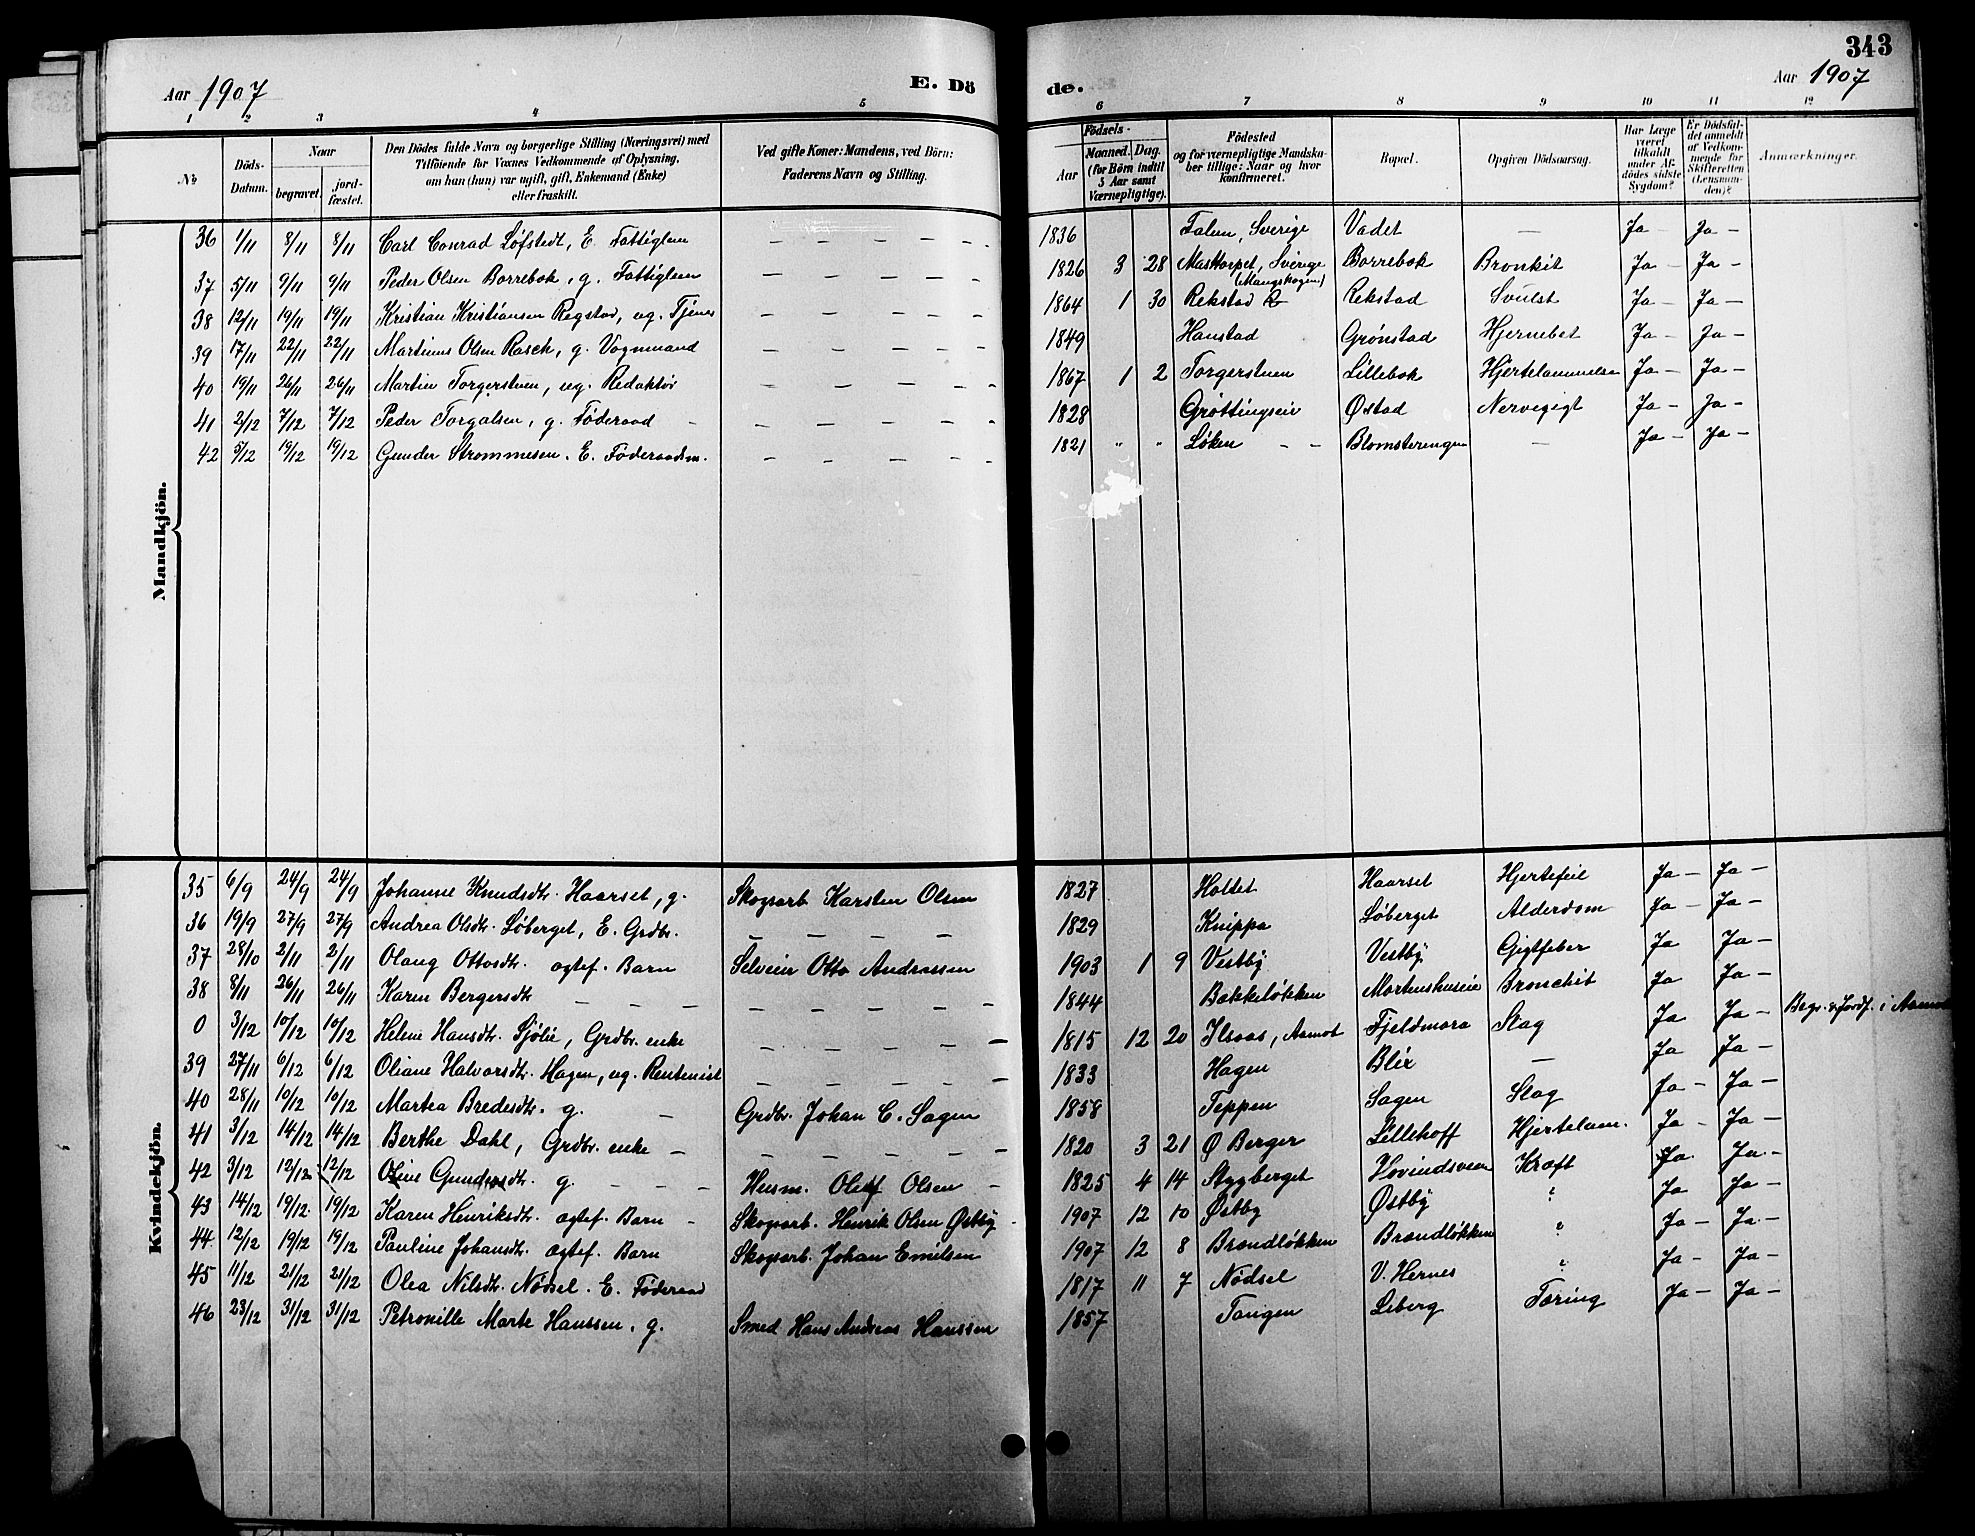 343
Aar 1907
E. Dö de.
Aar 1907
1 2 3 4 5 6 7 8 9 10 11 12
№
Döds-Datum.
Naar
begravet.
jord-fæstet.
Den Dödes fulde Navn og borgerlige Stilling (Næringsvei) med
Tilföiende for Voxnes Vedkommende af Oplysning,
om han (hun) var ugift, gift, Enkemand (Enke)
eller fraskilt.
Ved gifte Koner: Mandens, ved Börn:
Faderens Navn og Stilling.
Födsels-
Aar
Maaned. Dag.
(for Börn indtil
5 Aar samt
Værnepligtige).
Födested
og for værnepligtige Mandska-
ber tillige: Naar og hvor
konfirmeret.
Bopæl.
Opgiven Dödsaarsag.
Har Læge
været
tilkaldt
under Af-
dödes sidste
Sygdom?
Er Dödsfal-
det anmeldt
af Vedkom-
mende for
Skifteretten
(Lensman-
den)?
Anmærkninger.
Mandkjön.
36 1/11 8/11 8/11 Carl Conrad Løfstedt, E. Fattiglem — — — — — 1836 Falun, Sverige Vadet — Ja — Ja —
37 5/11 9/11 9/11 Peder Olsen Borrebok, g. Fattiglem — — — — — 1826 3 28 Masttorpet, Sverige (Mangskogen) Borrebok Bronkit Ja — Ja —
38 12/11 19/11 19/11 Kristian Kristiansen Regstad, ug. Tjener — — — — — 1864 1 30 Rekstad Rekstad Svulst Ja — Ja —
39 17/11 22/11 22/11 Martinus Olsen Rasch, g. Vognmand — — — — — 1849 Hanstad Grønstad Hjernebet Ja — Ja —
40 19/11 26/11 26/11 Martin Torgerstuen, ug. Redaktør — — — — — 1867 1 2 Torgerstuen Lillebok Hjertelammelse Ja — Ja —
41 2/12 7/12 7/12 Peder Torgalsen, g. Føderaad — — — — — — 1828 Grøttingseie Østad Nervegigt Ja — Ja —
42 5/12 19/12 19/12 Gunder Strommesen. E. Føderaadsm. — — — — — 1821 " " Løken — — Blomsterengen — Ja — Ja —
Kvindekjön.
35 6/9 24/9 24/9 Johanne Knudsdtr. Haarset, g. Skogsarb Karsten Olsen 1827 Holtet Haarset Hjertefeil Ja — Ja —
36 19/9 27/9 27/9 Andrea Olsdtr. Løberget, E. Grdbr. — — — — 1829 Knippa Løberget Alderdom Ja — Ja —
37 28/10 2/11 2/11 Olaug Ottosdtr. ægtef. Barn Selveier Otto Andreassen 1903 1 9 Vestby Vestby Gigtfeber Ja Ja —
38 8/11 26/11 26/11 Karen Bergersdtr — — — — — — — 1844 Bakkeløkken Mortenshuseie Bronchit Ja Ja —
0 3/12 10/12 10/12 Helene Hansdtr. Sjølie, Grdbr. enke — — — — — 1815 12 20 Ilsaas, Aamot Fjeldmora Slag Ja Ja — Begr. & Jordf. i Aamot
39 27/11 6/12 6/12 Oliane Halvorsdtr. Hagen, ug. Rentenist — — — — — 1833 Hagen Blix — Ja Ja —
40 28/11 10/12 10/12 Martea Bredesdtr. g. — Grdbr. Johan C. Sagen 1858 Teppen Sagen Slag Ja — Ja —
41 3/12 14/12 14/12 Berthe Dahl, Grdbr. enke — — — — — — 1820 3 21 Ø Berger Lillehoff Hjertelam. Ja — Ja —
42 3/12 12/12 12/12 Oline Gundersdtr. g. — — — Husm. Oluf Olsen — 1825 4 14 Stygberget Hovindsveen Kræft Ja. Ja. —
43 14/12 19/12. 19/12 Karen Henriksdtr. ægtef. Barn — Skogsarb. Henrik Olsen Østby — 1907 12 10 Østby Østby " Ja Ja —
44. 12/12 19/12 19/12 Pauline Johansdtr. ægtef. Barn Skogsarb. Johan Emilsen 1907 12 8 Brændløkken Brændløkken " Ja — Ja. —
45 11/12 21/12 21/12 Olea Nilsdtr. Nødsel. E. Føderaad 1817 11 7 Nødsel V. Hernes " Ja — Ja —
46 23/12 31/12 31/12 Petronille Marte Hanssen, g. Smed Hans Andreas Hanssen 1857 Tangen Leberg Tæring Ja — Ja —